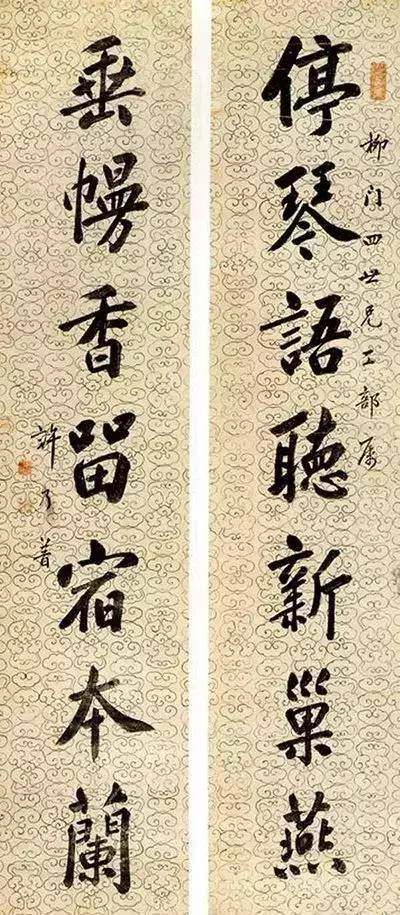 柳门四世兄工部属
停琴語聽新巢燕
垂幔香留宿本蘭
許乃普